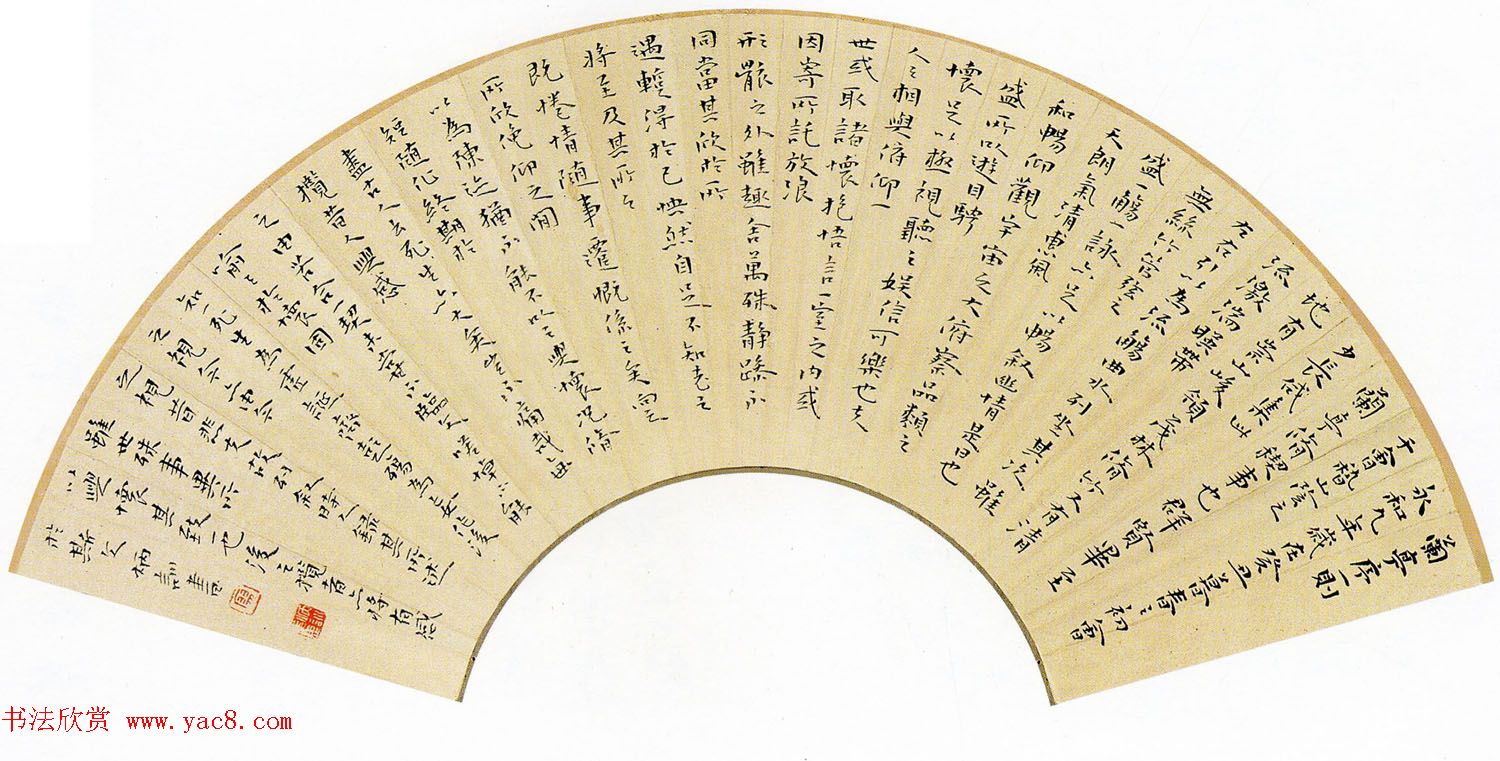 蘭亭序一則
永和九年歲在癸丑暮春之初會
于會稽山陰之
蘭亭脩禊事也群賢畢至
少長咸集此
地有崇山峻領茂林脩竹又有清
流激湍暎帶
左右引以為流觴曲水列坐其次雖
無絲竹管弦之
盛一觴一詠亦足以暢敘幽情是日也
天朗氣清惠風
和暢仰觀宇宙之大俯察品類之
盛所以遊目騁
懷足以極視聽之娛信可樂也夫
人之相與俯仰一
世或取諸懷抱悟言一室之內或
因寄所託放浪
形骸之外雖趣舍萬殊靜躁不
同當其欣於所
遇蹔得於己怏然自足不知老之
將至及其所之
既惓情隨事遷慨係之矣向之
所欣俛仰之閒
以為陳迹猶不能不以之興懷況脩
短隨化終期於
盡古人云死生亦大矣豈不痛哉每
攬昔人興感
之由若合一契未嘗不臨文嗟悼不能
喻之於懷固
知一死生為虛誕齊彭殤為妄作後
之視今亦由今
之視昔悲夫故列敘時人錄其所述
雖世殊事異所
以興懷其致一也後之攬者亦將有感
於斯文 柄訓書
书法欣赏 www.yac8.com